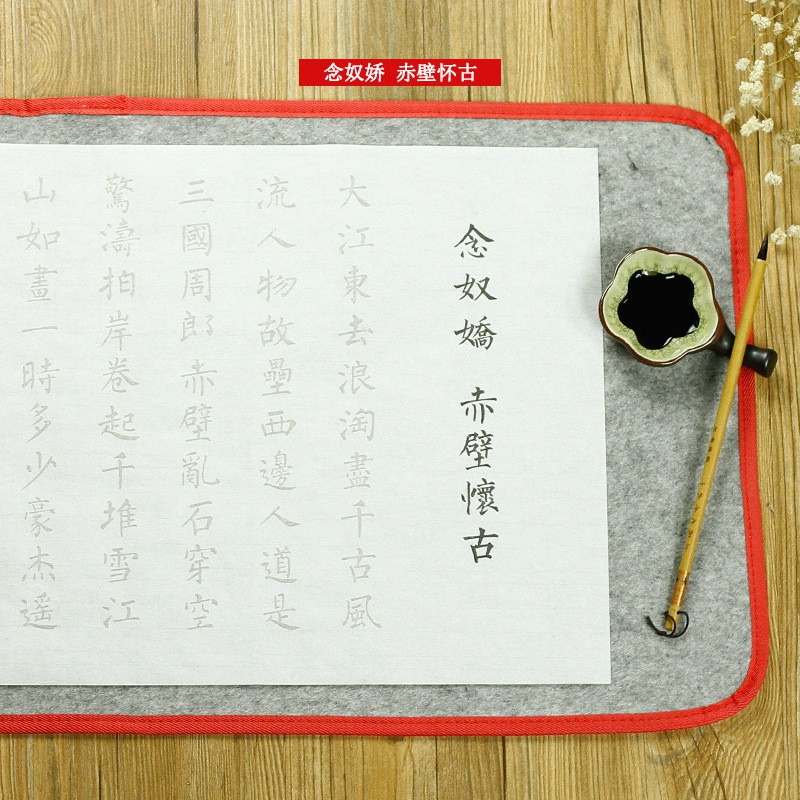 念奴娇 赤壁怀古
念奴嬌 赤壁懷古
大江東去浪淘盡千古風
流人物故壘西邊人道是
三國周郎赤壁亂石穿空
驚濤拍岸卷起千堆雪江
山如畫一時多少豪杰遥